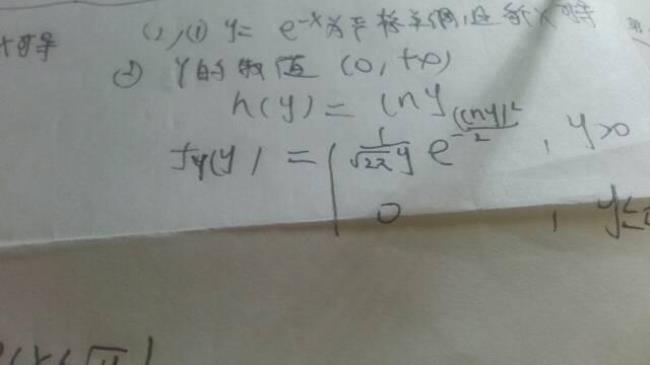 (2)、① y = e^{-x}为严格单调,且对x可导
② Y的取值 (0, +∞)
h(y) = lny
f_Y(y) = { \frac{1}{\sqrt{2π}y} e^{-\frac{(lny)^2}{2}} , y>0
0 , y≤0